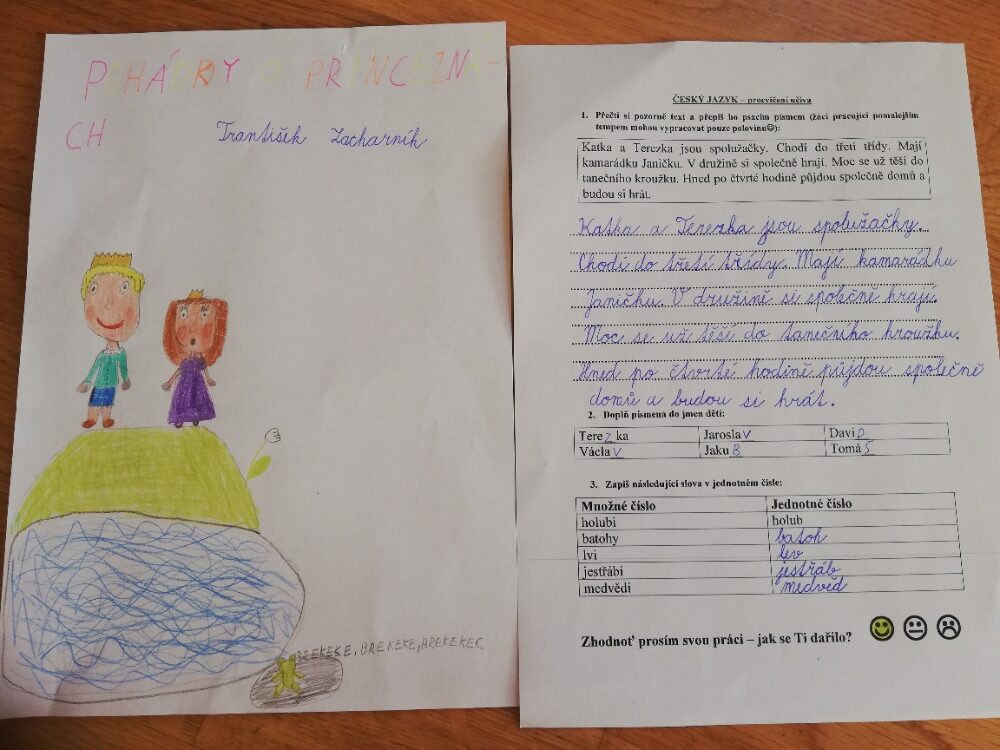 POHÁDKY O PRINCEZNÁ-
CH
František Zacharník
BREKEKE, BREKEKE, BREKEKEC
ČESKÝ JAZYK – procvičení učiva
1. Přečti si pozorně text a přepiš ho psacím písmem (žáci pracující pomalejším
tempem mohou vypracovat pouze polovinu☺):
Katka a Terezka jsou spolužačky. Chodí do třetí třídy. Mají
kamarádku Janičku. V družině si společně hrají. Moc se už těší do
tanečního kroužku. Hned po čtvrté hodině půjdou společně domů a
budou si hrát.
Katka a Terezka jsou spolužačky.
Chodí do třetí třídy. Mají kamarádku
Janičku. V družině si společně hrají.
Moc se už těší do tanečního kroužku.
Hned po čtvrté hodině půjdou společně
domů a budou si hrát.
2. Doplň písmena do jmen dětí:
Terezka Jaroslav DaviD
Václav JakuB TomáŠ
3. Zapiš následující slova v jednotném čísle:
Množné číslo Jednotné číslo
holubi holub
batohy batoh
lvi lev
jestřábi jestřáb
medvědi medvěd
Zhodnoť prosím svou práci – jak se Ti dařilo?